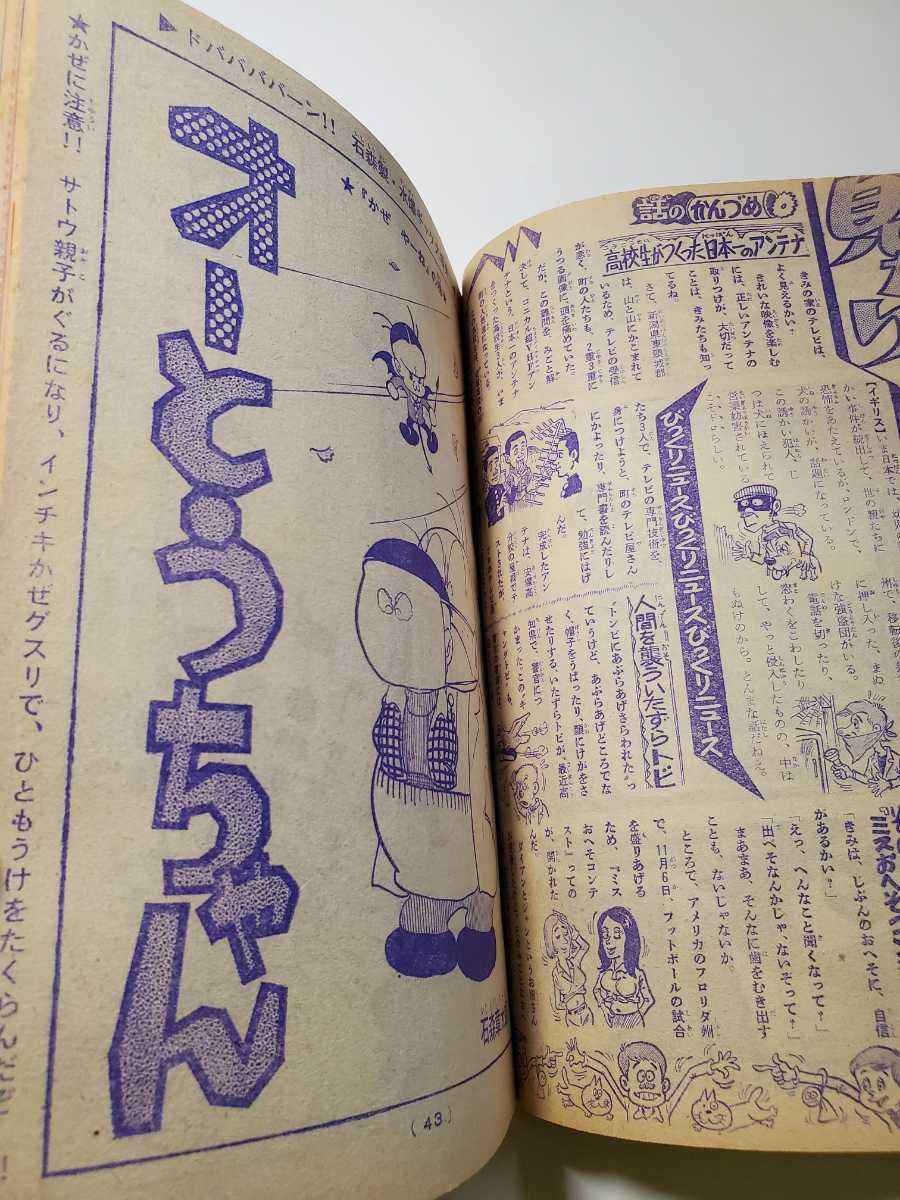 ★かぜに注意!! サトウ親子がぐるになり、インチキかぜグスリで、ひともうけをたくらんだ
▶ドババババーン!! 石森
オーとうちゃん
★『かぜ や
(43)
話のかんづめ
高校生がつくった日本一のアンテナ
きみの家のテレビは、
よく見えるかい?
きれいな映像を楽しむ
には、正しいアンテナの
取りつけが、大切だって
ことは、きみたちも知っ
てるね。
さて、新潟県東頸城郡
は、山と山にかこまれて
いるため、テレビの受信
が悪く、町の人たちも、2重3重に
うつる画像に、頭を痛めていた。
だが、この難問を、みごと解
決して、コニカル超VHFアン
テナという、日本一のアンテナ
をつくった高校生3人が、いま
たち3人で、テレビの専門技術を、
身につけようと、町のテレビ屋さん
にかよったり、専門書を読んだりし
て、勉強にはげ
んだ。
完成したアン
テナは、安塚高
びっくりニュースびっくりニュースびっくりニュース
【イギリス】いま日本では、
かい事件が続出して、世の親たちに
恐怖をあたえているが、ロンドンで、
犬の誘かいが、話題になっている。
この誘かい犯人、じ
つは犬にほえられて
営業妨害されている
こそどろらしい。
州で、移転後の
に押し入った、まぬ
けな強盗団がいる。
電話を切ったり、
窓わくをこわしたり
して、やっと侵入したものの、中は
もぬけのから。とんまな話だねえ。
人間を襲ういたずらトビ
"トンビにあぶらあげさらわれた"っ
ていうけど、あぶらあげどころでな
く、帽子をうばったり、顔にけがをさ
せたりする、いたずらトビが、最近高
知県で、警官につ
かまった。この"ギ
ャングトビ"も、
『ミスおへそ
「きみは、じぶんのおへそに、自信
があるかい?」
「えっ、へんなこと聞くなって?」
「出べそなんかじゃ、ないぞって?」
まあまあ、そんなに歯をむき出す
ことも、ないじゃないか。
ところで、アメリカのフロリダ州
で、11月6日、フットボールの試合
を盛りあげる
ため、『ミス
おへそコンテ
スト』っての
が、開かれた
んだ。
ダイアンとジャンというお嬢さん